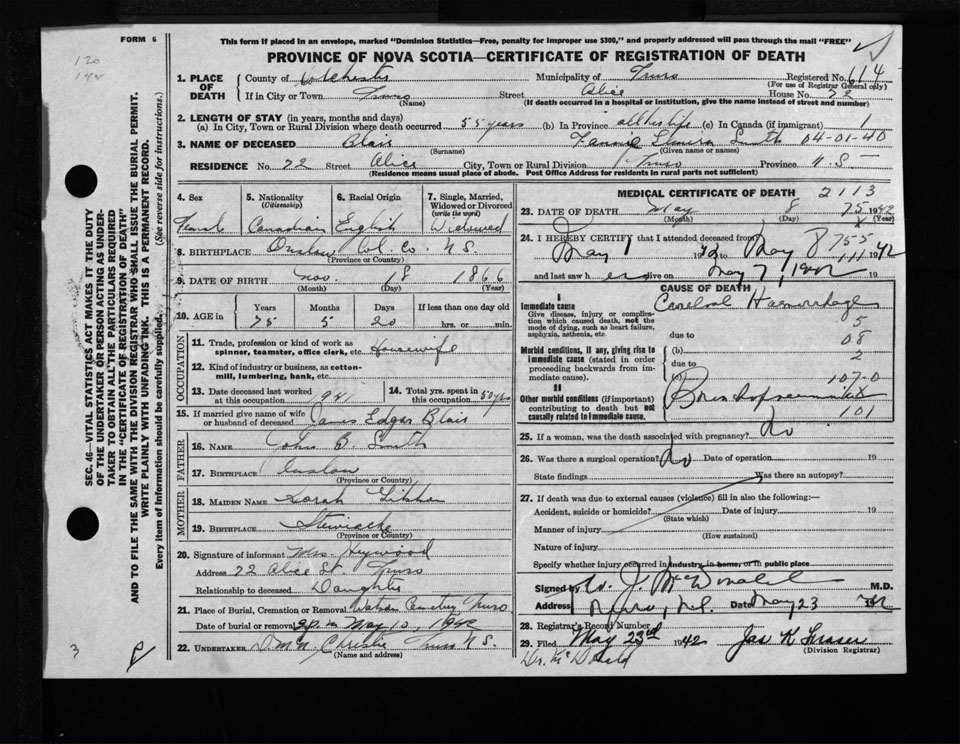 FORM 6
This form if placed in an envelope, marked "Dominion Statistics—Free, penalty for improper use $300," and properly addressed will pass through the mail "FREE"
PROVINCE OF NOVA SCOTIA—CERTIFICATE OF REGISTRATION OF DEATH
120
1. PLACE OF DEATH County of Colchester Municipality of Truro Registered No. 614
(For use of Registrar General only)
If in City or Town Truro Street Alice House No. 72
(Name) (If death occurred in a hospital or institution, give the name instead of street and number)
2. LENGTH OF STAY (in years, months and days)
(a) In City, Town or Rural Division where death occurred 55 years (b) In Province all his life (c) In Canada (if immigrant)
3. NAME OF DECEASED Blair Fannie Elmira Smith 04-01-40
(Surname) (Given name or names)
RESIDENCE No. 72 Street Alice City, Town or Rural Division Truro Province N.S.
(Residence means usual place of abode. Post Office Address for residents in rural parts not sufficient)
SEC. 46—VITAL STATISTICS ACT MAKES IT THE DUTY
OF THE UNDERTAKER OR PERSON ACTING AS UNDER-
TAKER TO OBTAIN ALL THE PARTICULARS REQUIRED
IN THE "CERTIFICATE OF REGISTRATION OF DEATH"
AND TO FILE THE SAME WITH THE DIVISION REGISTRAR WHO SHALL ISSUE THE BURIAL PERMIT.
WRITE PLAINLY WITH UNFADING INK. THIS IS A PERMANENT RECORD.
Every item of Information should be carefully supplied. (See reverse side for instructions.)
4. Sex 5. Nationality (Citizenship) 6. Racial Origin 7. Single, Married, Widowed or Divorced (write the word)
Canadian English Widowed
8. BIRTHPLACE Onslow Col. Co. N.S.
(Province or Country)
9. DATE OF BIRTH Nov. 18 1866
(Month) (Day) (Year)
10. AGE in Years Months Days If less than one day old
75 5 20 hrs. or min.
OCCUPATION
11. Trade, profession or kind of work as spinner, teamster, office clerk, etc. Housewife
12. Kind of industry or business, as cotton-mill, lumbering, bank, etc.
13. Date deceased last worked at this occupation 1941 14. Total yrs. spent in this occupation 50 yrs
15. If married give name of wife or husband of deceased James Edgar Blair
FATHER
16. NAME John B. Smith
17. BIRTHPLACE Onslow
(Province or Country)
MOTHER
18. MAIDEN NAME Sarah
19. BIRTHPLACE Stewiacke
(Province or Country)
20. Signature of informant Mrs. Heywood
Address 72 Alice St. Truro
Relationship to deceased Daughter
21. Place of Burial, Cremation or Removal Cemetery Truro
Date of burial or removal May 10, 1942
22. UNDERTAKER Christie Truro N.S.
(Name and address)
3
MEDICAL CERTIFICATE OF DEATH 2113
23. DATE OF DEATH May 8 1942
(Month) (Day) (Year)
24. I HEREBY CERTIFY that I attended deceased from
May 1 1942 to May 8 1942
and last saw her alive on May 7 1942 19
CAUSE OF DEATH
I
Immediate cause
Give disease, injury or complication which caused death, not the mode of dying, such as heart failure, asphyxia, asthenia, etc.
Cerebral Haemorrhage
5
due to 08
Morbid conditions, if any, giving rise to immediate cause (stated in order proceeding backwards from immediate cause).
(b) 2
due to
(c) 107-0
II
Other morbid conditions (if important) contributing to death but not causally related to immediate cause.
101
25. If a woman, was the death associated with pregnancy? No
26. Was there a surgical operation? No Date of operation 19
State findings Was there an autopsy?
27. If death was due to external causes (violence) fill in also the following:—
Accident, suicide or homicide? Date of injury 19
(State which)
Manner of injury
(How sustained)
Nature of injury
Specify whether injury occurred in industry, in home, or in public place
Signed by J. McDonald M.D.
Address Truro, N.S. Date May 23 1942
28. Registrar's Record Number
29. Filed May 23rd 1942 Jas K Fraser
(Division Registrar)
Dr. McDonald